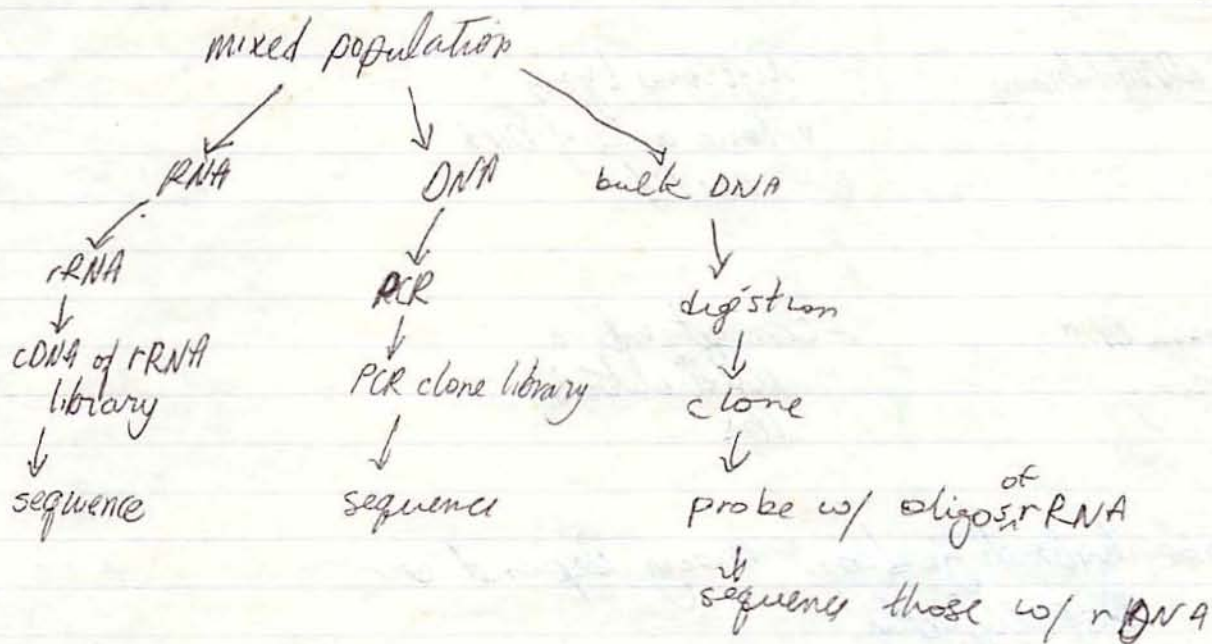 mixed population
RNA
DNA
bulk DNA
rRNA
cDNA of rRNA
library
sequence
PCR
PCR clone library
sequence
digistion
clone
probe w/ oligos of rRNA
sequence those w/ rDNA